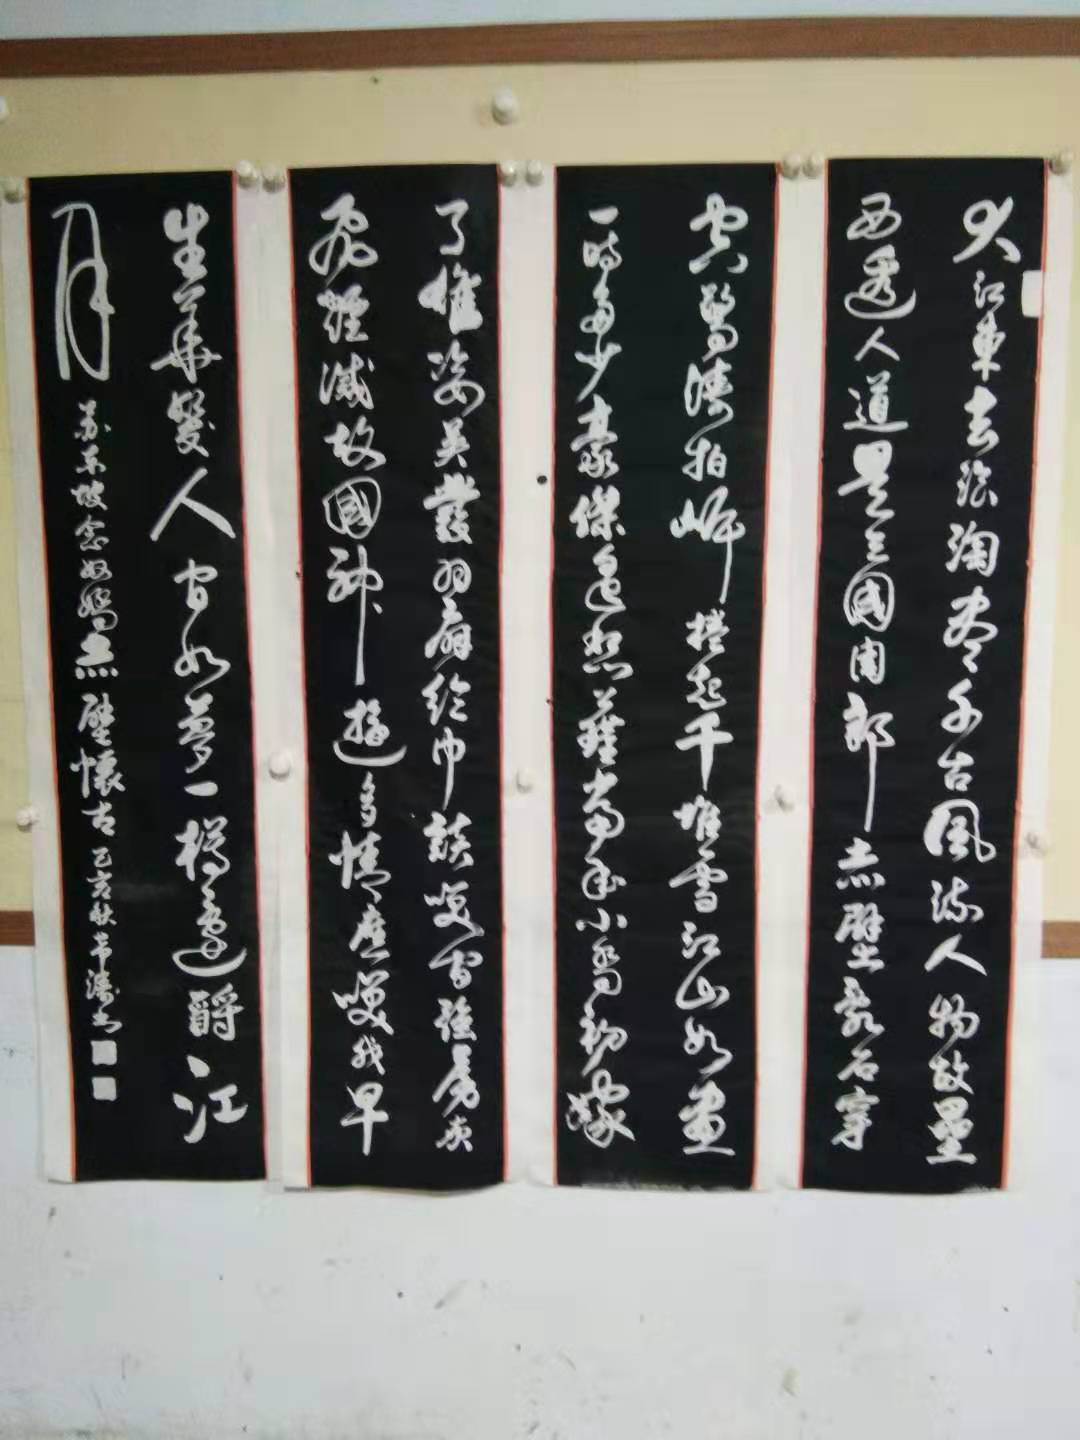 大江東去浪淘盡千古風流人物故壘
西邊人道是三國周郎赤壁亂石穿
空驚濤拍岸捲起千堆雪江山如畫
一時多少豪傑遙想公瑾當年小喬初嫁
了雄姿英發羽扇綸巾談笑間強虜灰
飛煙滅故國神遊多情應笑我早
生華髮人間如夢一樽還酹江
月
苏东坡念奴嬌赤壁懷古 己亥秋濤书